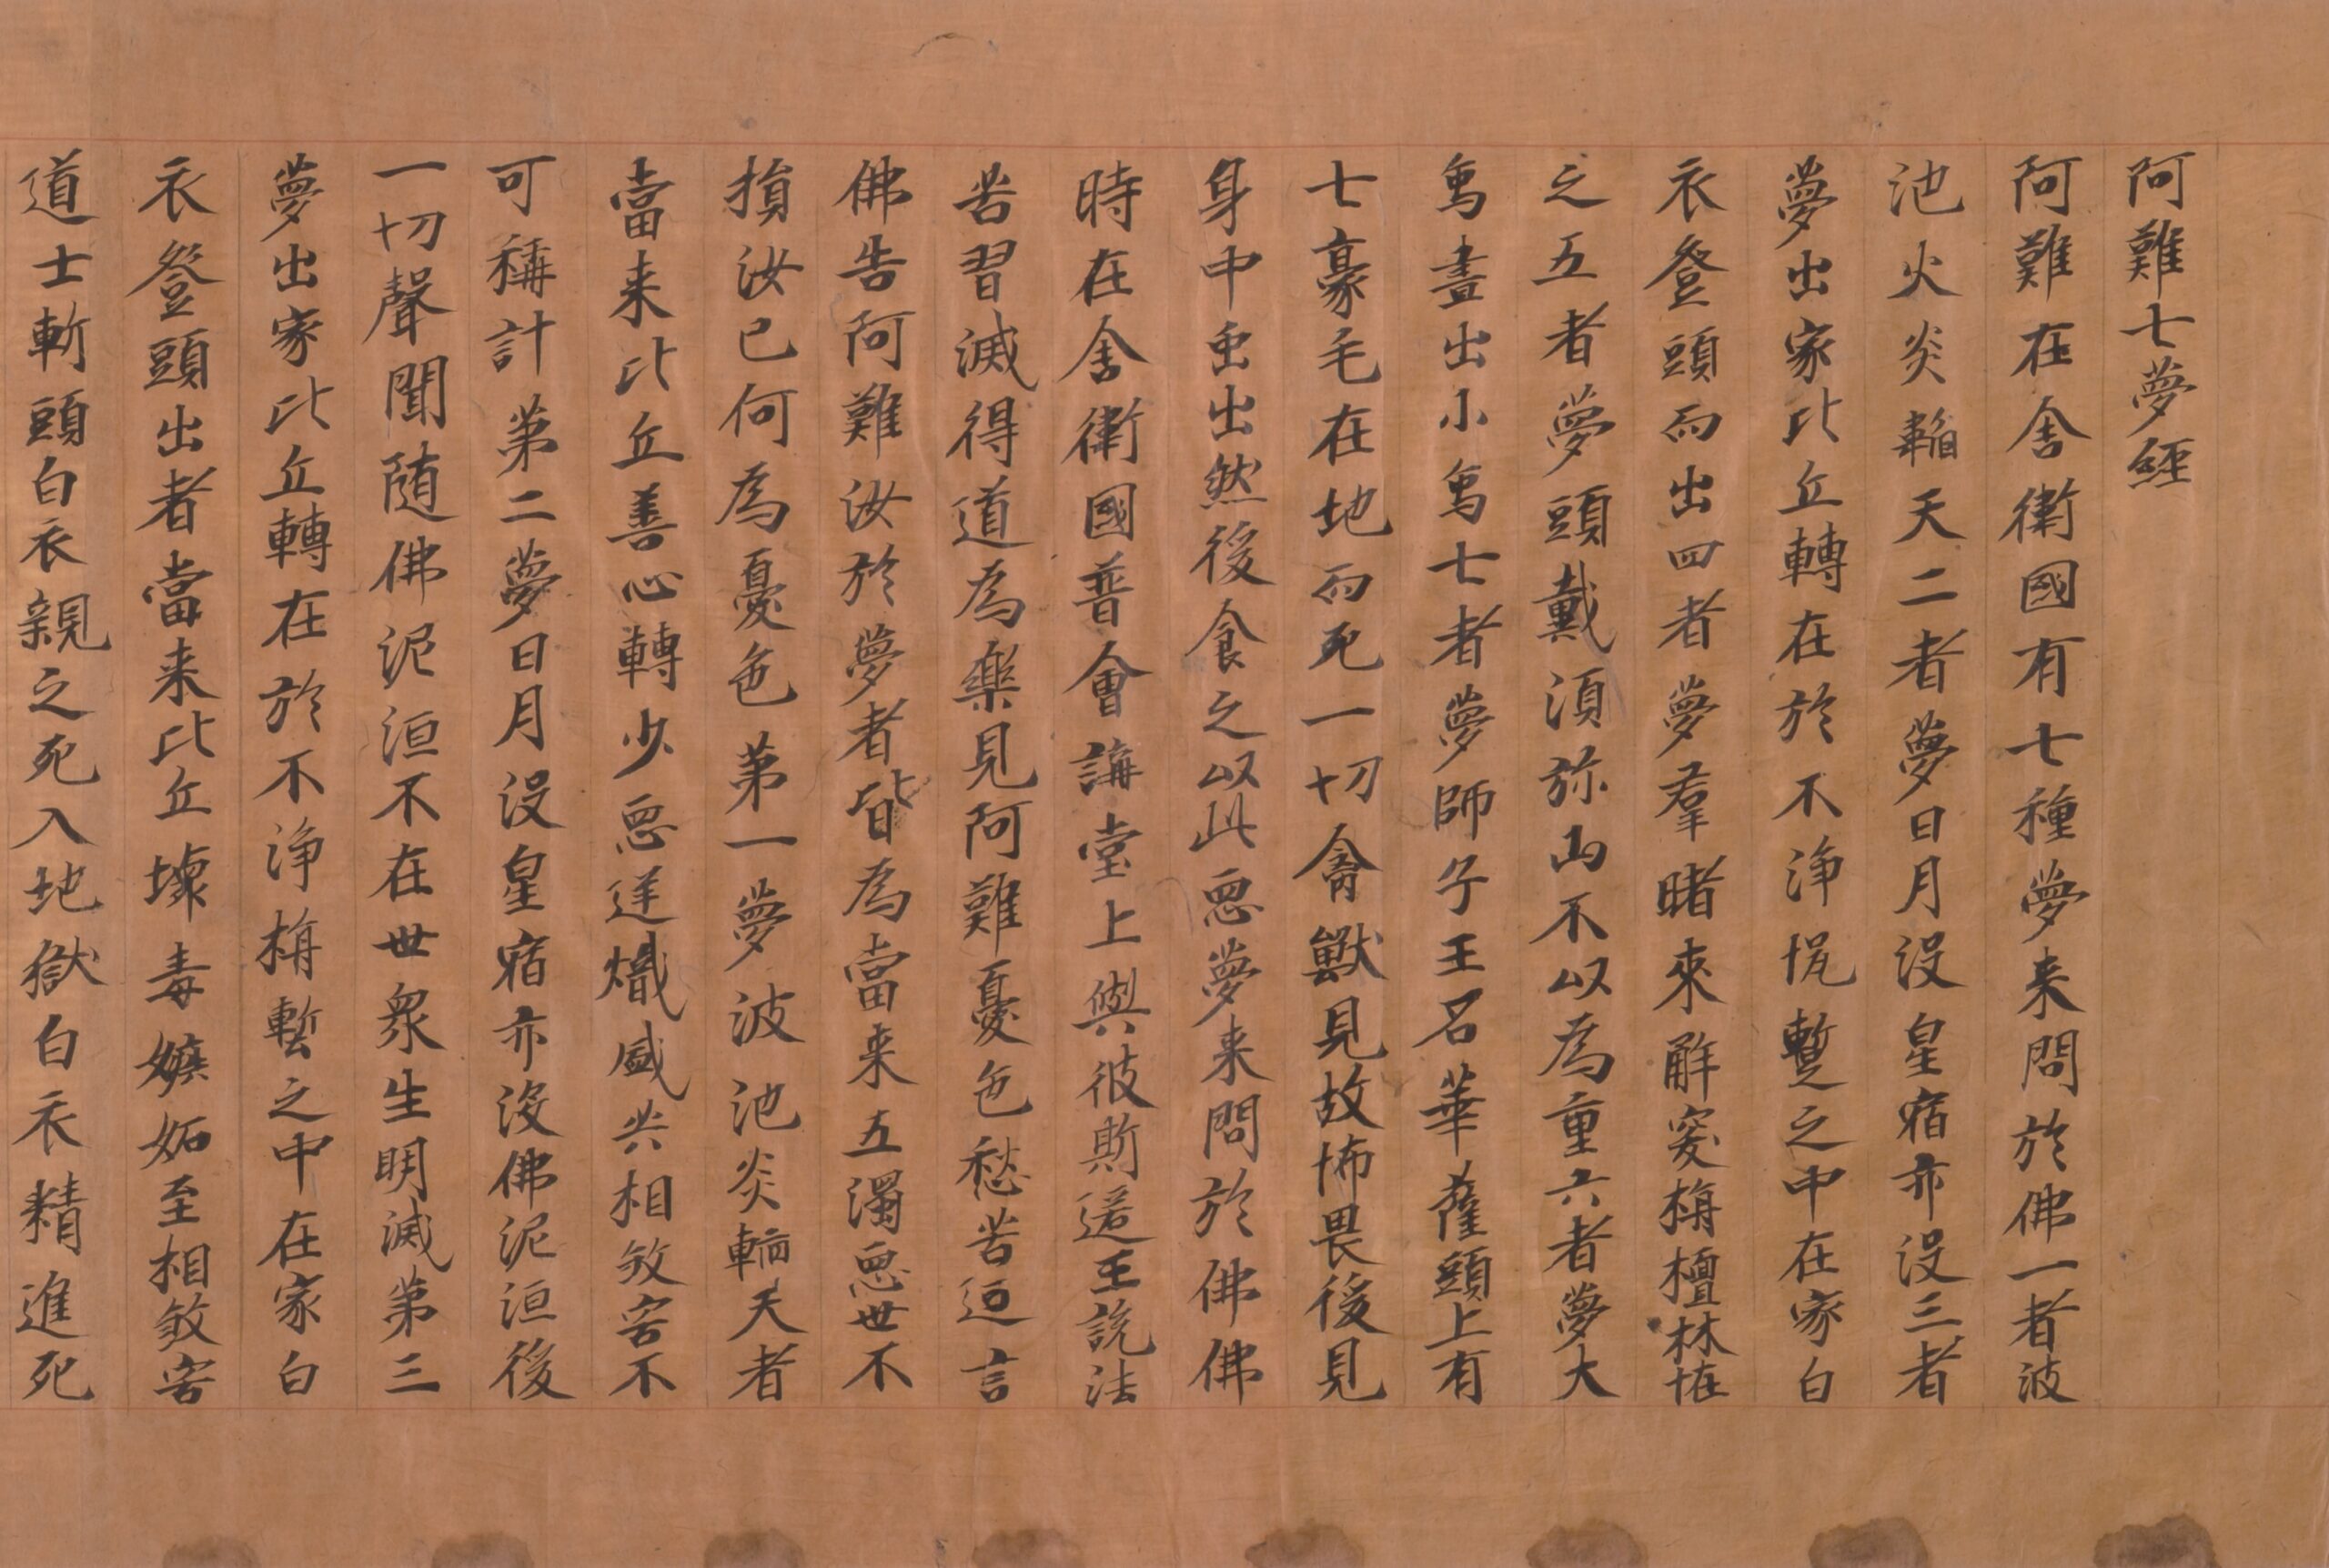 阿難七夢經
阿難在舍衛國有七種夢来問於佛一者波
池火炎韜天二者夢日月没星宿亦没三者
夢出家比丘轉在於不浄坑塹之中在家白
衣登頭而出四者夢羣猪來觝突栴檀林恠
之五者夢頭戴須弥山不以為重六者夢大
象棄出小象七者夢師子王名華薩頭上有
七豪毛在地而死一切禽獸見故怖畏後見
身中虫出然後食之以此惡夢来問於佛佛
時在舍衛國普會講堂上與彼斯匿王説法
苦習滅得道為樂見阿難憂色愁苦廻言
佛告阿難汝於夢者皆為當来五濁惡世不
損汝已何為憂色第一夢波池炎輪天者
當来比丘善心轉少惡逆熾盛共相煞害不
可稱計第二夢日月没星宿亦没佛泥洹後
一切聲聞随佛泥洹不在世衆生明滅第三
夢出家比丘轉在於不浄栴塹之中在家白
衣登頭出者當来比丘壊毒嫉妬至相煞害
道士斬頭白衣親之死入地獄白衣精進死